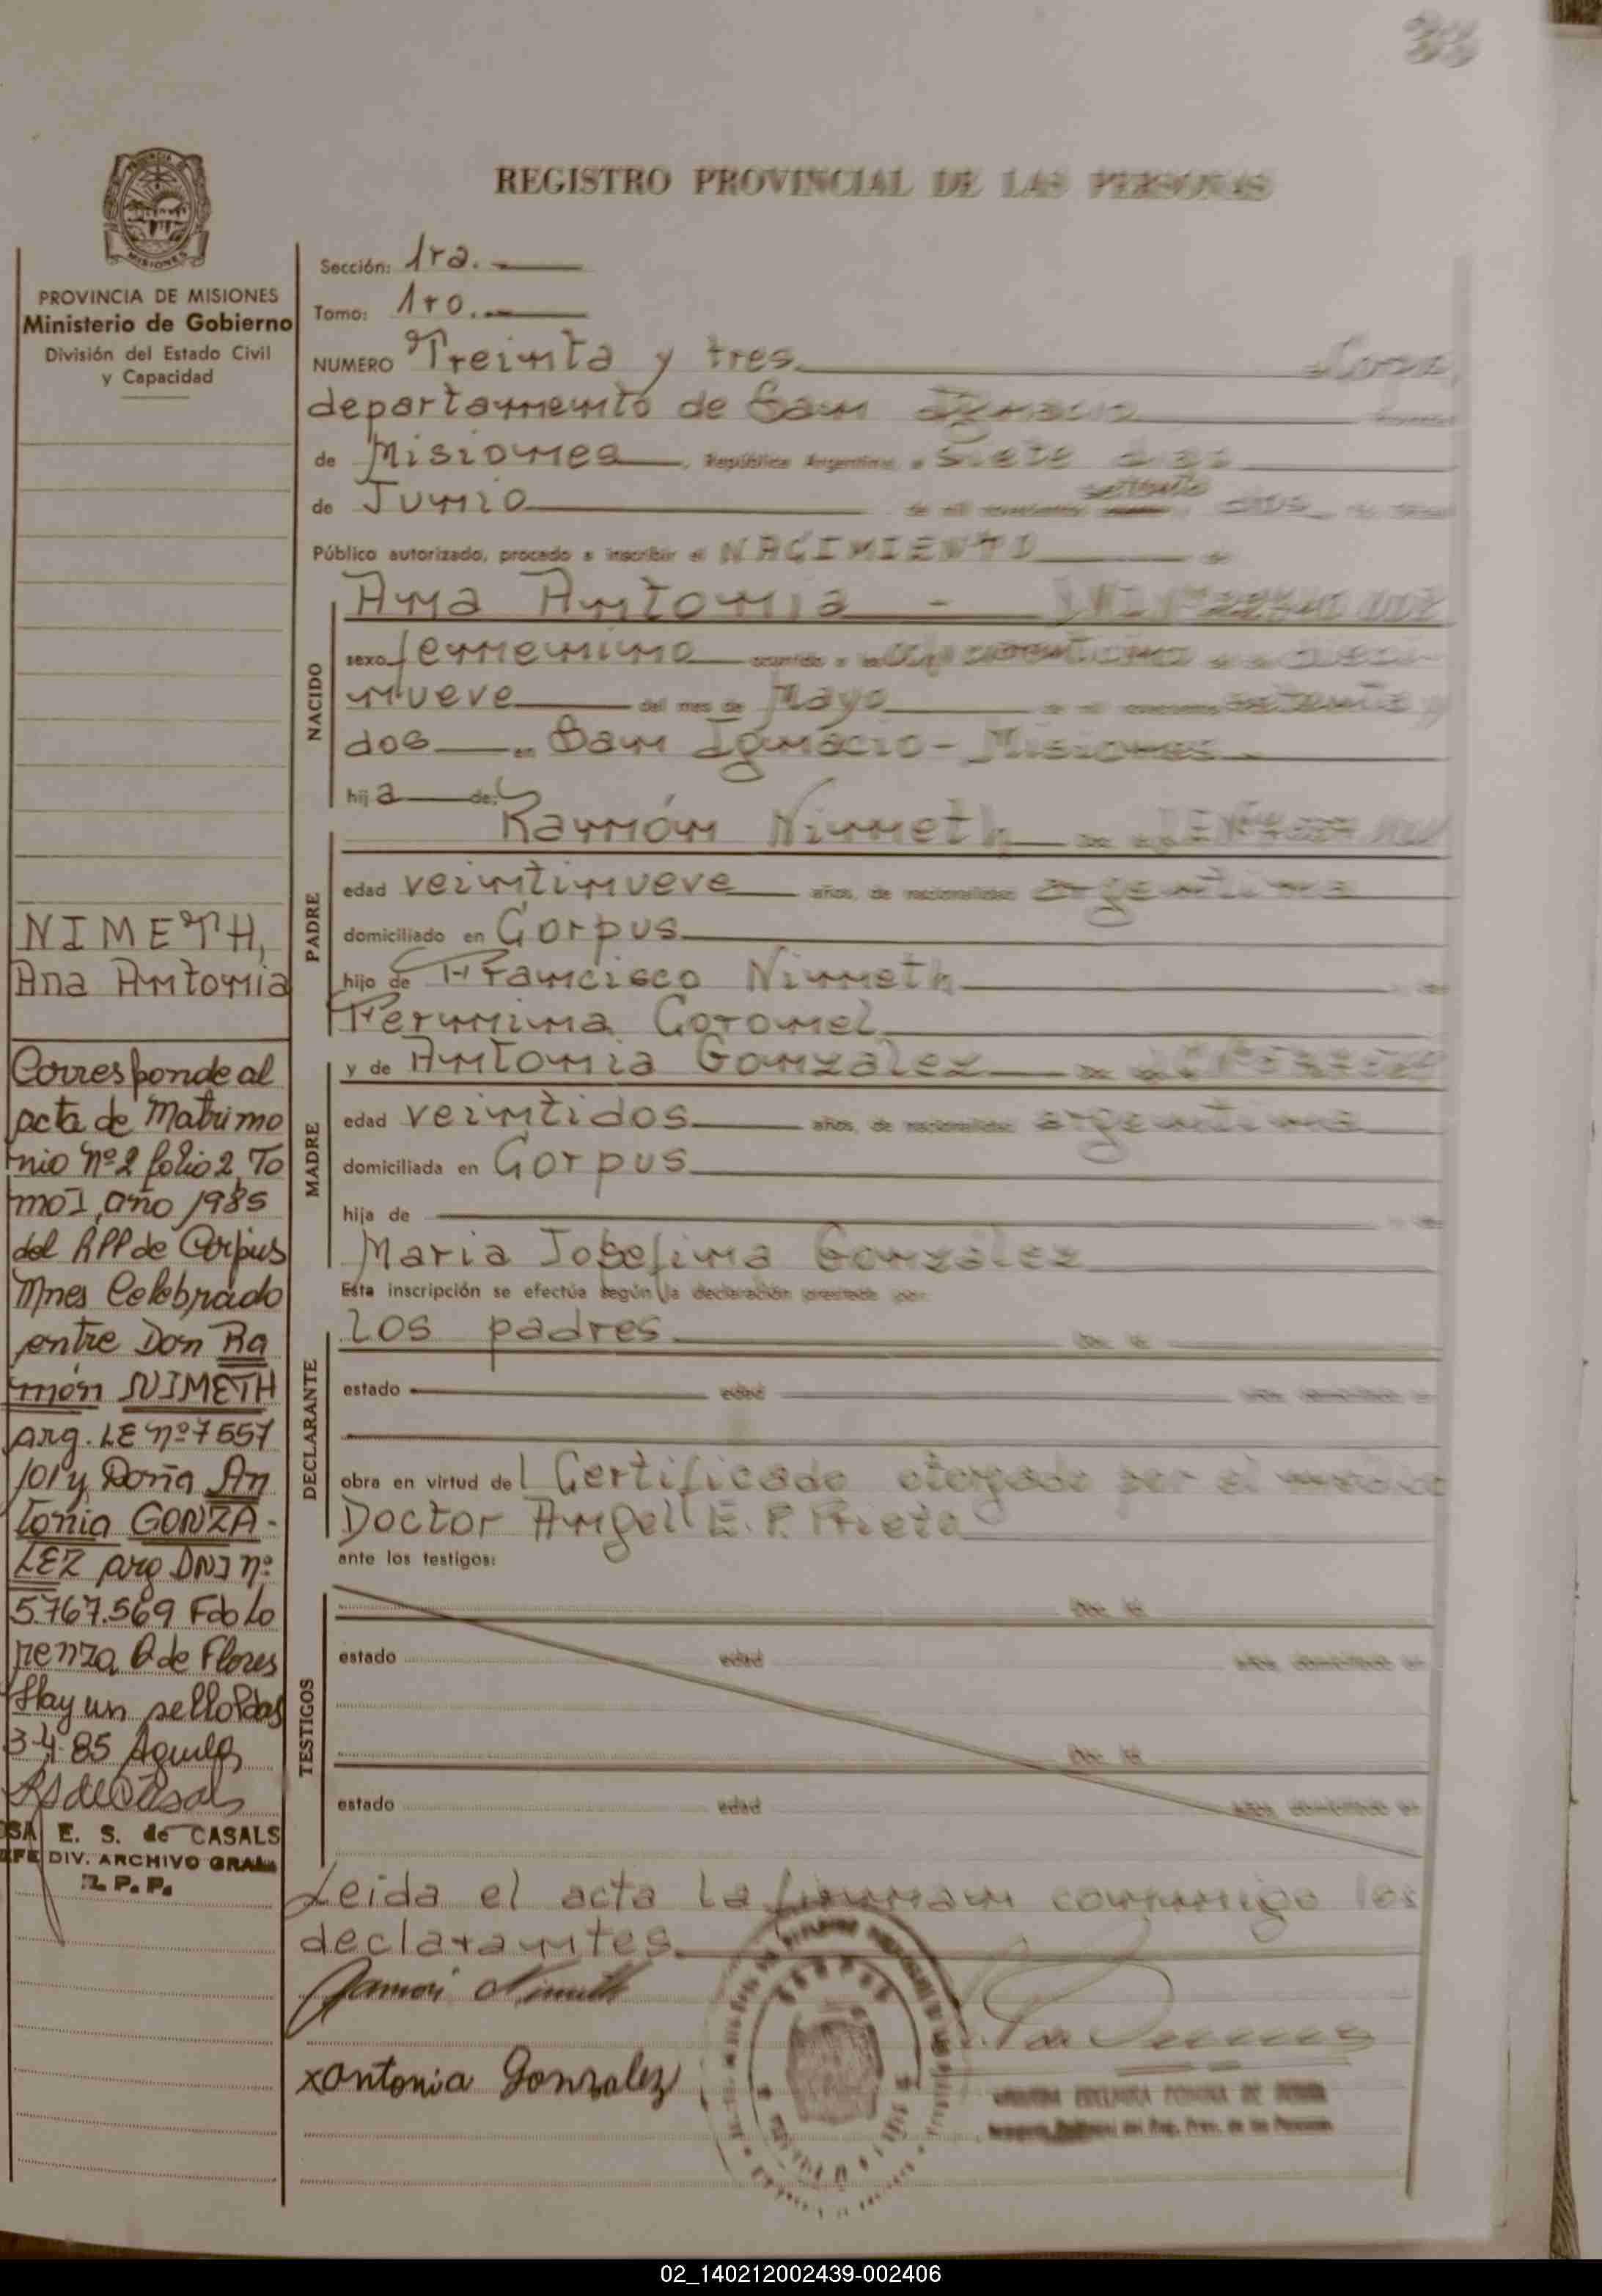 33
REGISTRO PROVINCIAL DE LAS PERSONAS
MISIONES
PROVINCIA DE MISIONES
Ministerio de Gobierno
División del Estado Civil
y Capacidad
NIMETH,
Ana Antonia
Corresponde al
acta de Matrimo
nio nº 2 folio 2, To
mo I, año 1985
del RPP de Corpus
Mnes Celebrado
entre Don Ra
món NIMETH
arg. LE nº 7557
101 y Doña An
tonia GONZA-
LEZ arg DNI nº
5.767.569 Fdo Lo
renza Q de Flores
Hay un sello Pdas
3-4-85 Aguila
E. S. de CASALS
DIV. ARCHIVO GRAL
R. P. P.
Sección: 1ra.
Tomo: 1ro.
NUMERO Treinta y tres
departamento de San Ignacio
de Misiones, República Argentina, a siete días
de Junio de mil novecientos setenta dos
Público autorizado, procedo a inscribir el NACIMIENTO de
NACIDO
Ana Antonia -
sexo femenino ocurrido a las de el dieci
nueve del mes de Mayo de mil novecientos setenta y
dos en San Ignacio - Misiones
hij a de:
PADRE
Ramón Nimeth
edad veintinueve años, de nacionalidad argentina
domiciliado en Corpus
hijo de Francisco Nimeth
Fermina Coronel
MADRE
y de Antonia González
edad veintidos años, de nacionalidad argentina
domiciliada en Corpus
hija de
Maria Josefina González
Esta inscripción se efectúa según la declaración prestada por:
DECLARANTE
los padres
estado edad años domiciliado en
obra en virtud del Certificado otorgado por el medico
Doctor Angel E. P. Prieto
ante los testigos:
TESTIGOS
Doc. Id.
estado edad años domiciliado en
Doc. Id.
estado edad años domiciliado en
Leida el acta la firman conmigo los
declarantes
Ramon Nimeth
x Antonia Gonzalez
02_140212002439-002406